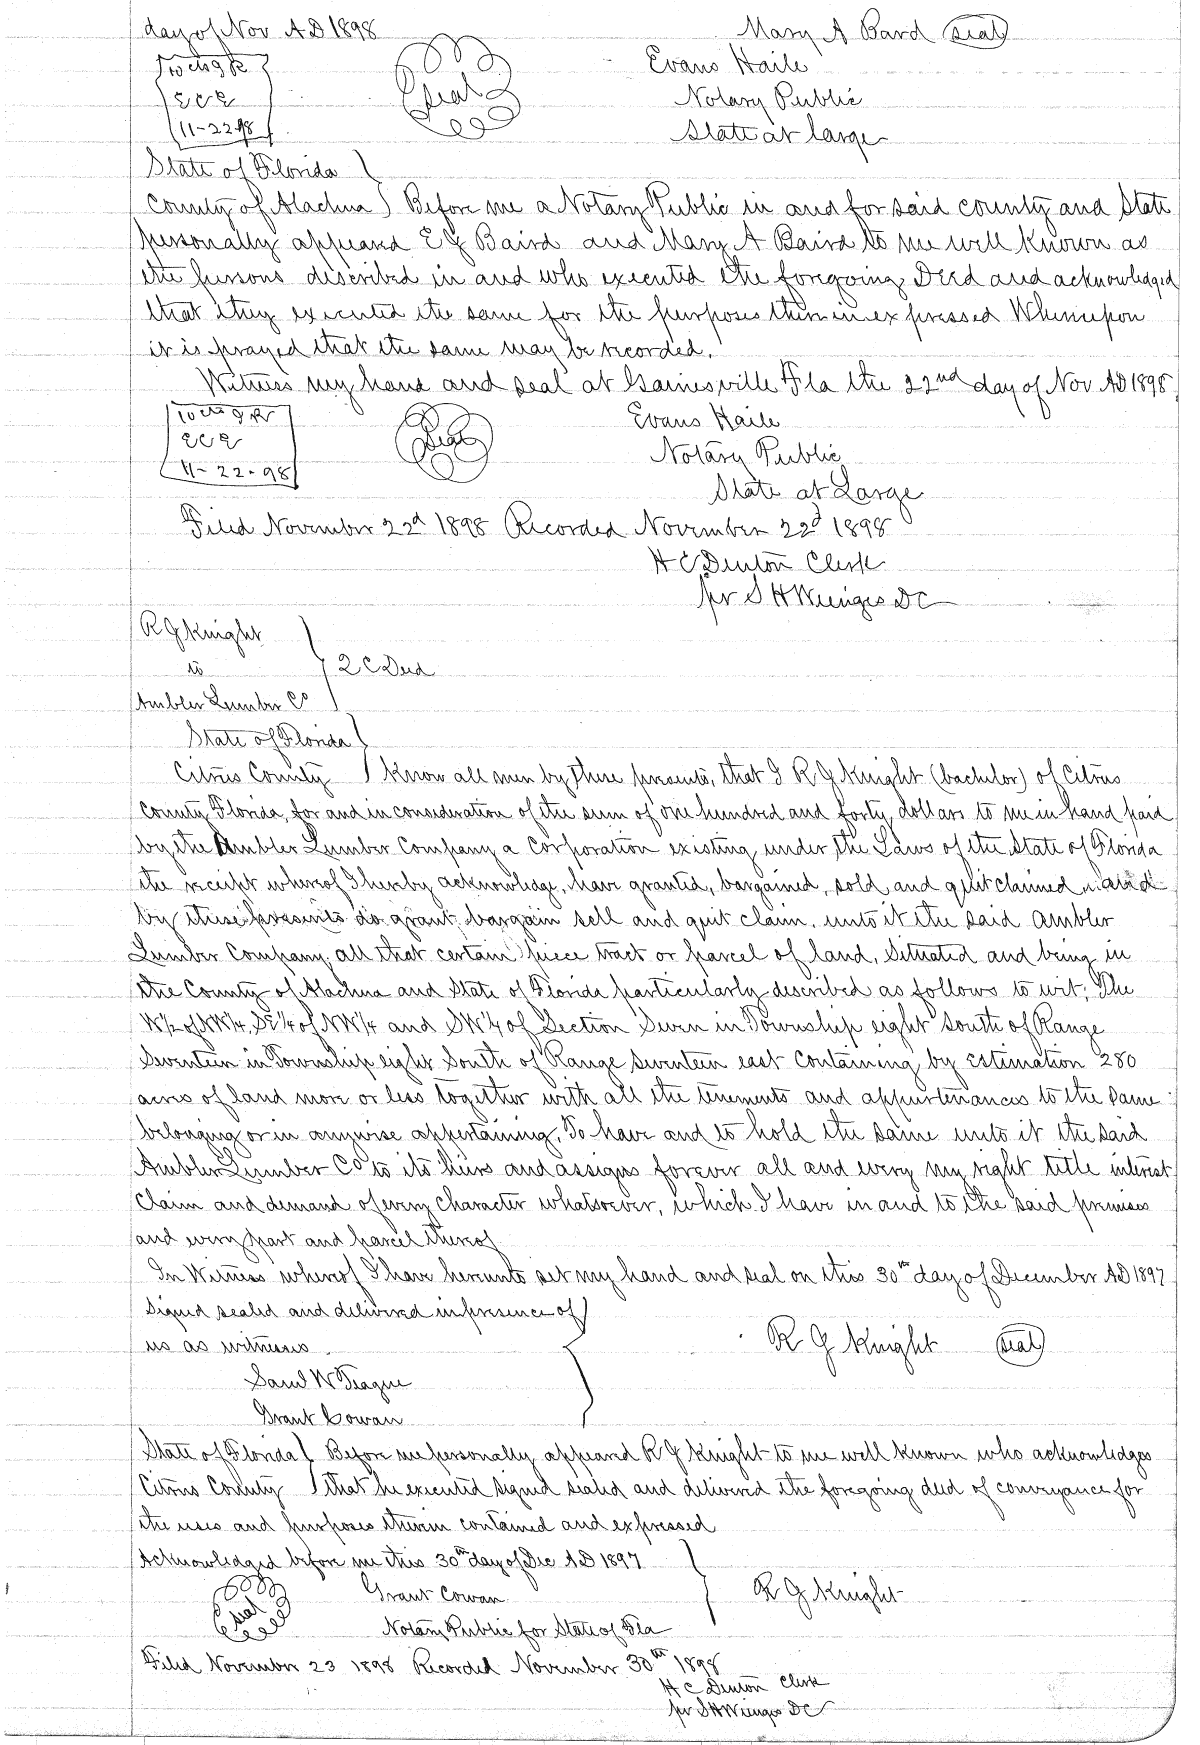 day of Nov AD 1898 Mary A Bard (seal)
10 cts I R Evans Haile
ECE Seal Notary Public
11-22-98 State at large
State of Florida
County of Alachua) Before me a Notary Public in and for said county and State
personally appeard E J Baird and Mary A Baird to me well known as
the persons described in and who executed the foregoing Deed and acknowledged
that they executed the same for the purposes therein expressed Whereupon
it is prayed that the same may be recorded.
Witness my hand and seal at Gainesville Fla the 22nd day of Nov AD 1898
10 cts I R Evans Haile
ECE Seal Notary Public
11-22-98 State at Large
Filed November 22d 1898 Recorded November 22d 1898
H C Denton Clerk
pr S H Wienges DC
R G Knight
to 2 C Deed
Ambler Lumber Co
State of Florida
Citrus County Know all men by these presents, that I R G Knight (bachelor) of Citrus
County Florida, for and in consideration of the sum of one hundred and forty dollars to me in hand paid
by the Ambler Lumber Company a Corporation existing under the Laws of the State of Florida
the receipt whereof I hereby acknowledge, have granted, bargained, sold and quit claimed and
by these presents do grant bargain sell and quit claim, unto it the said Ambler
Lumber Company, all that certain piece tract or parcel of land, Situated and being in
the County of Alachua and State of Florida particularly described as follows to wit; The
W½ of NW¼, SE¼ of NW¼ and SW¼ of Section Seven in Township eight South of Range
Seventeen in Township eight South of Range Seventeen east containing by estimation 280
acres of land more or less together with all the tenements and appurtenances to the same
belonging or in anywise appertaining, To have and to hold the same unto it the said
Ambler Lumber Co to its heirs and assigns forever all and every my right title interest
Claim and demand of every Character whatsoever, which I have in and to the said premises
and every part and parcel thereof
In Witness whereof I have hereunto set my hand and seal on this 30th day of December AD 1897
Signed sealed and delivered in presence of
us as witnesses R G Knight (seal)
Saml W Teague
Grant Cowan
State of Florida Before me personally appeared R G Knight to me well known who acknowledges
Citrus County that he executed signed sealed and delivered the foregoing deed of conveyance for
the uses and purposes therein contained and expressed
Acknowledged before me this 30th day of Dec AD 1897
Seal Grant Cowan R G Knight
Notary Public for State of Fla
Filed November 23 1898 Recorded November 30th 1898
H C Denton Clerk
pr S H Wienges DC